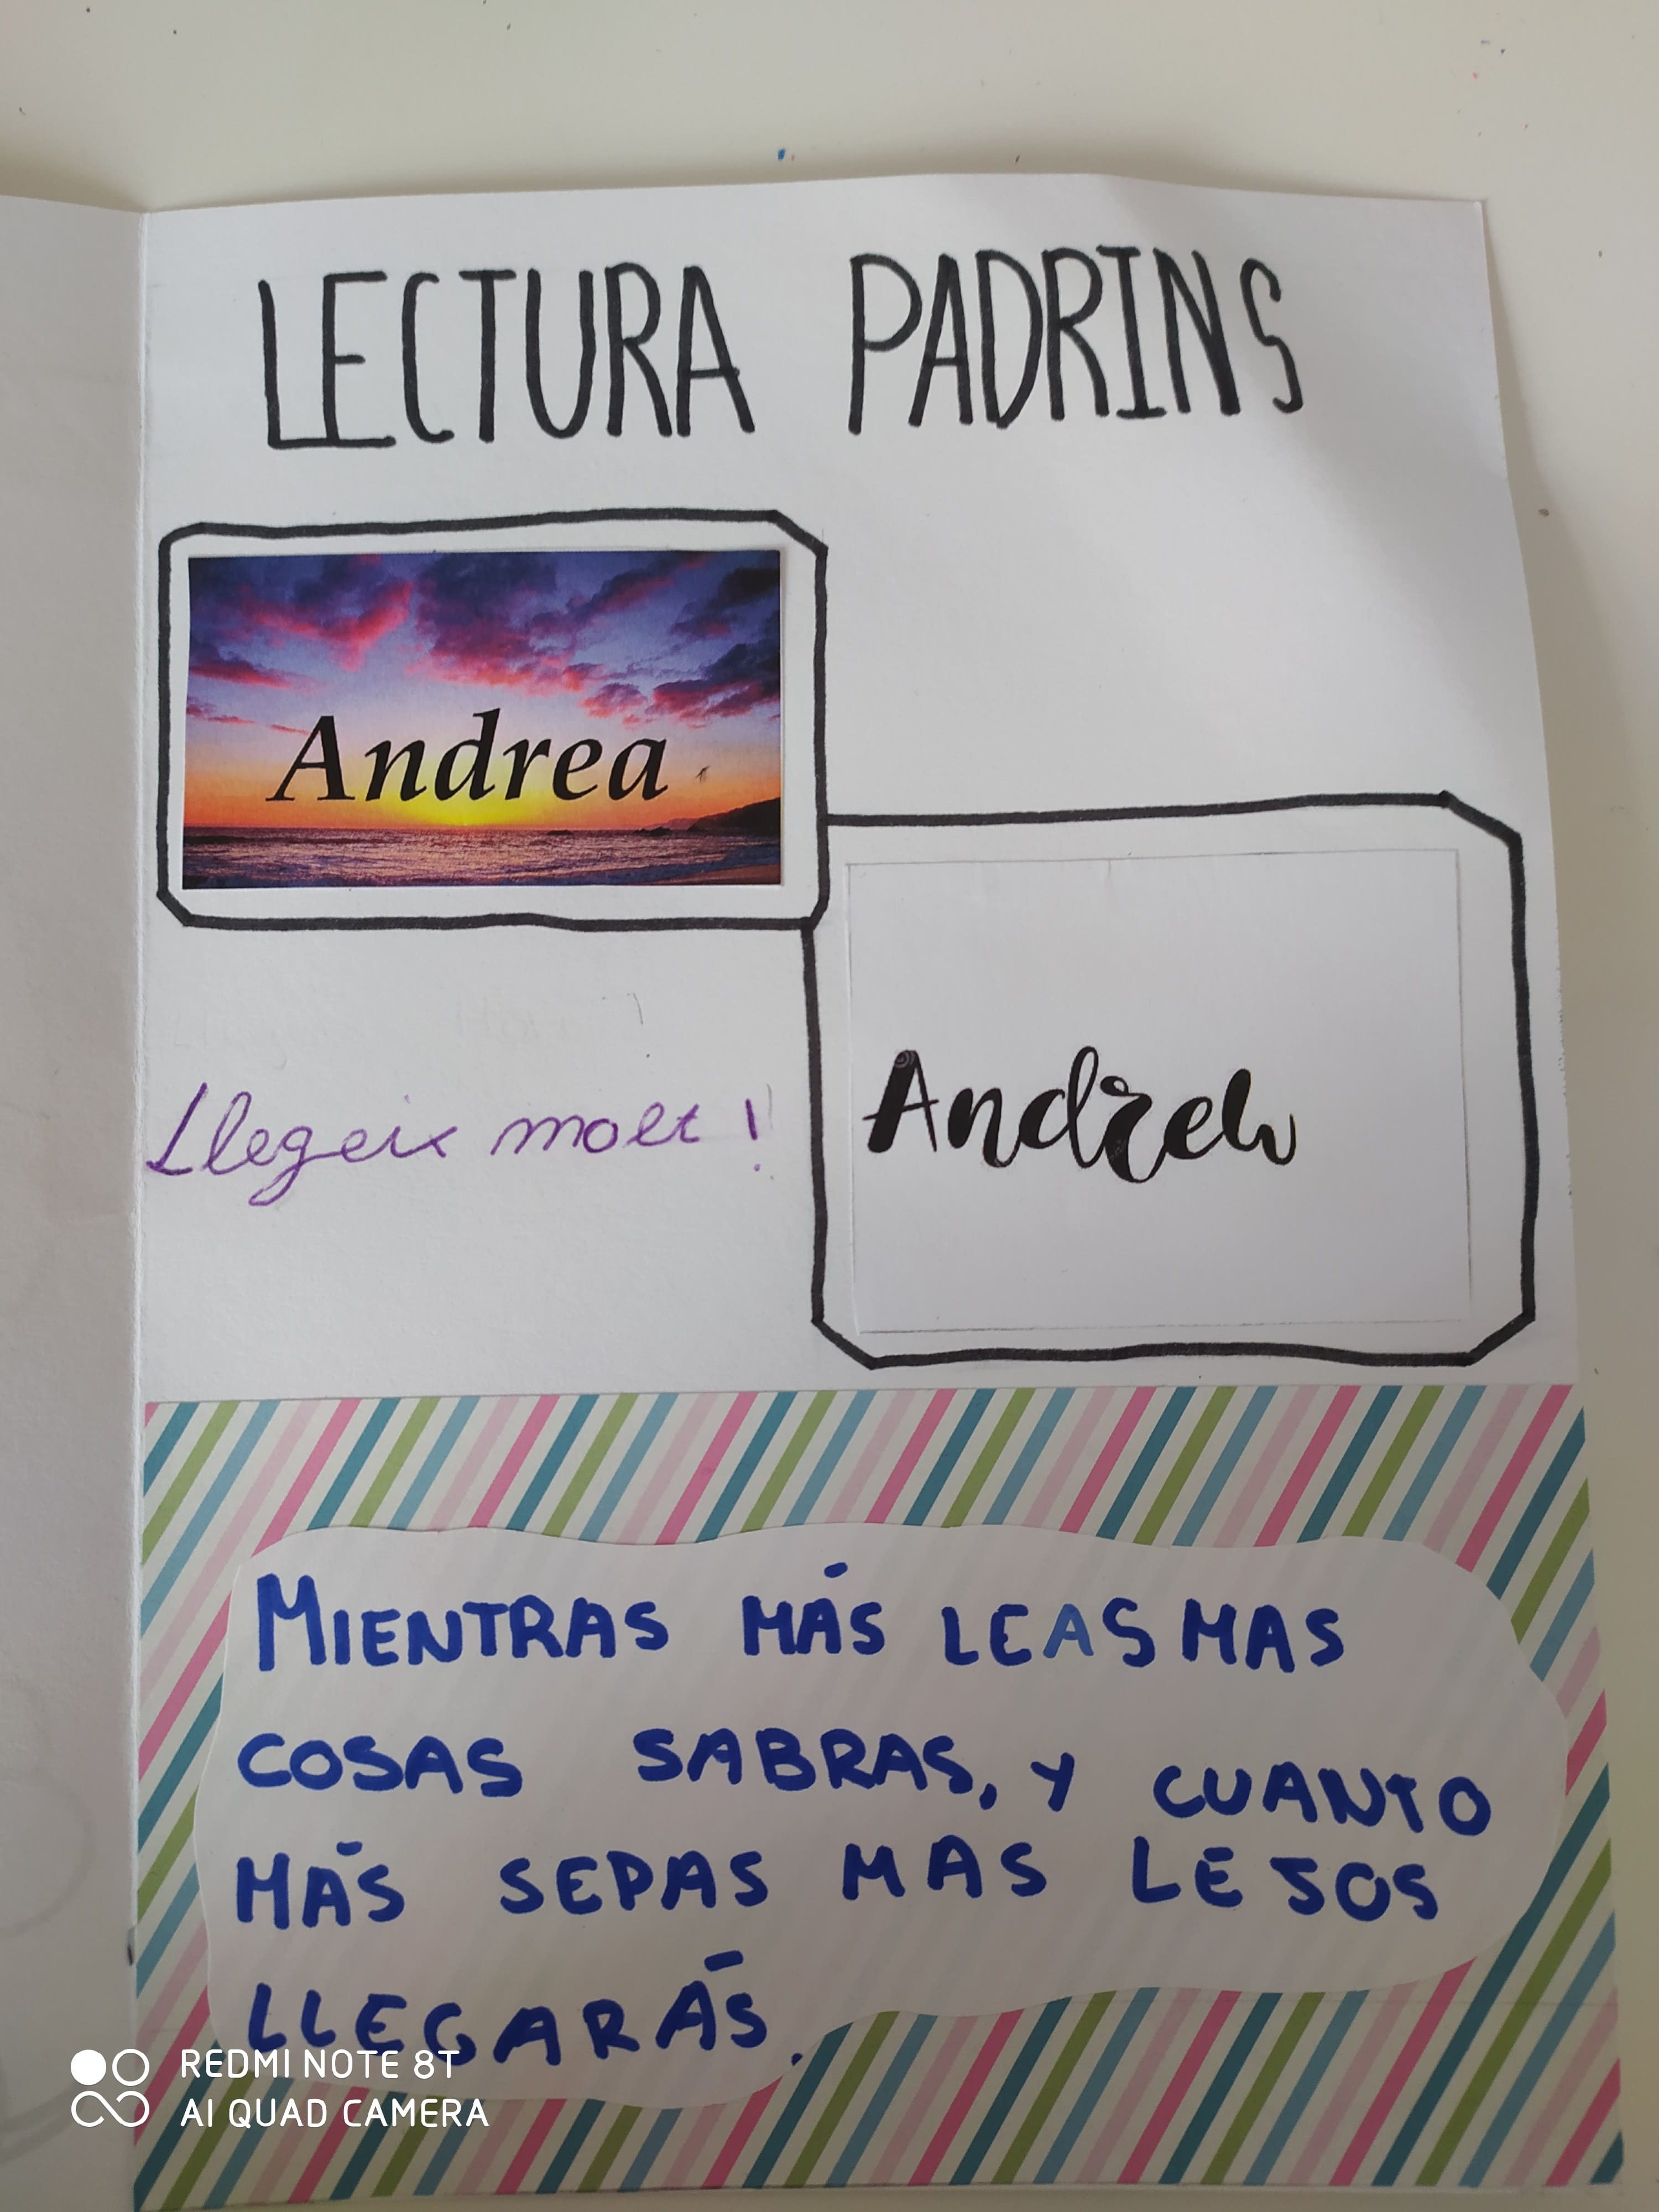 LECTURA PADRINS
Andrea
Andrew
Llegeix molt!
MIENTRAS MÁS LEAS MAS
COSAS SABRAS, Y CUANTO
MÁS SEPAS MAS LEJOS
LLEGARÁS.
REDMI NOTE 8T
AI QUAD CAMERA